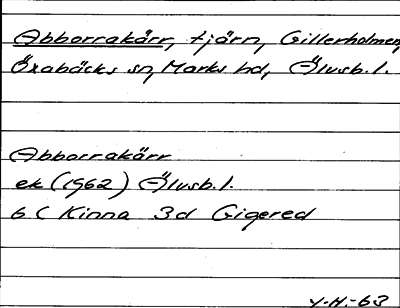 Abborrakärr, tjärn, Gillerholmen,
Öxabäcks sn, Marks hd, Älvsb. l.
Abborrakärr
ek (1962) Älvsb. l.
6 C Kinna 3d Gigered
Y.H.-63